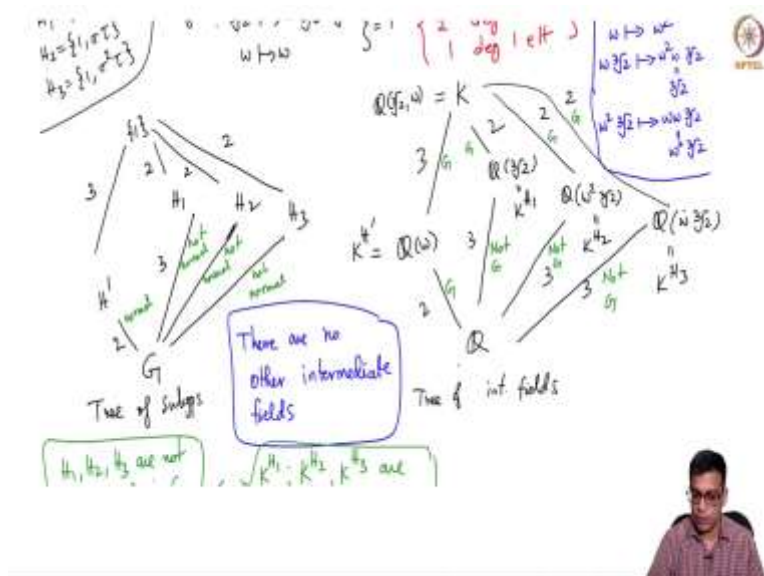 H₂={1,στ}
H₃={1,σ²τ}
w ↦ w
}=1
1 deg 1 elt
w ↦ w²
w∛2 ↦ w²w ∛2
=
∛2
w² ∛2 ↦ ww ∛2
w² ∛2
NPTEL
{1}
3
2
2
2
H₁
H₂
H₃
H'
3
not normal
not normal
not normal
normal
2
G
Tree of subgps
There are no
other intermediate
fields
Q(∛2, w) = K
3
G
2
G
2
G
2
G
Q(∛2)
=
K^H₁
Q(w² ∛2)
=
K^H₂
Q(w ∛2)
=
K^H₃
K^H' = Q(w)
2
G
3
Not G
3
Not G
3
Not G
Q
Tree of int. fields
H₁, H₂, H₃ are not
K^H₁, K^H₂, K^H₃ are